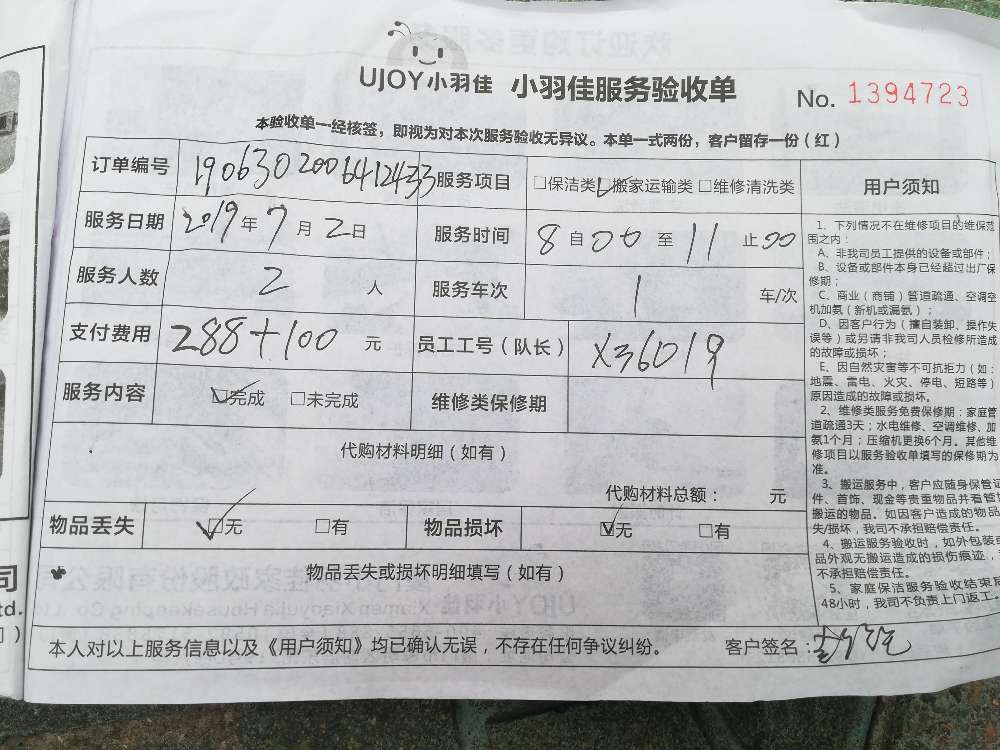 UJOY小羽佳 小羽佳服务验收单 No. 1394723
本验收单一经核签，即视为对本次服务验收无异议。本单一式两份，客户留存一份（红）
订单编号 1906302006412433 服务项目 □保洁类 □搬家运输类 □维修清洗类
服务日期 2019年7月2日 服务时间 8自00至11止00
服务人数 2人 服务车次 1车/次
支付费用 288+100元 员工工号（队长） X36019
服务内容 ☑完成 □未完成 维修类保修期
代购材料明细（如有）
代购材料总额： 元
物品丢失 ☑无 □有 物品损坏 ☑无 □有
物品丢失或损坏明细填写（如有）
本人对以上服务信息以及《用户须知》均已确认无误，不存在任何争议纠纷。 客户签名：
用户须知
1、下列情况不在维修项目的维保范
围之内：
A、非我司员工提供的设备或部件；
B、设备或部件本身已经超过出厂保
修期；
C、商业（商铺）管道疏通、空调空
机加氨（新机或漏氨）；
D、因客户行为（擅自装卸、操作失
误等）或另请非我司人员检修所造成
的故障或损坏；
E、因自然灾害等不可抗拒力（如：
地震、雷电、火灾、停电、短路等）
原因造成的故障或损坏。
2、维修类服务免费保修期：家庭管
道疏通3天；水电维修、空调维修、加
氨1个月；压缩机更换6个月。其他维
修项目以服务验收单填写的保修期为
准。
3、搬运服务中，客户应随身保管证
件、首饰、现金等贵重物品并看管
搬运的物品。如因客户造成的物品
失/损坏，我司不承担赔偿责任。
4、搬运服务验收时，如外包装或
品外观无搬运造成的损伤痕迹，
不承担赔偿责任。
5、家庭保洁服务验收结束后
48小时，我司不负责上门返工。
司
td.